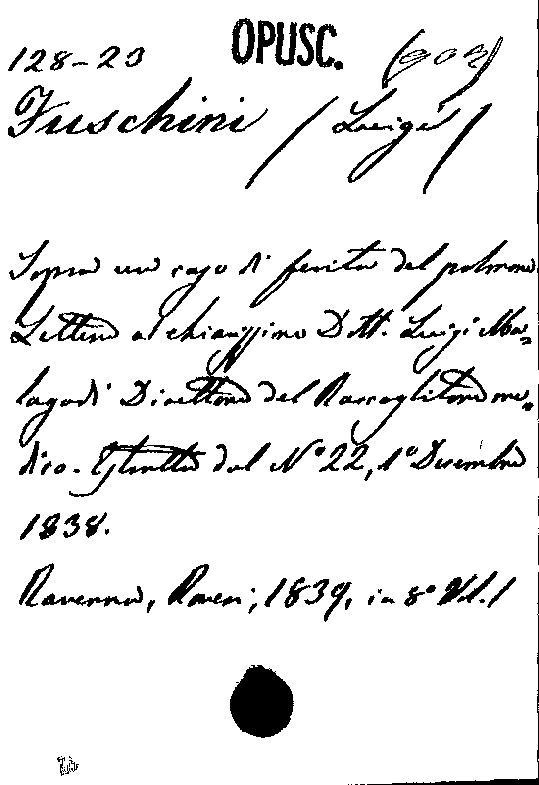 OPUSC.
128-20 (902)
Fuschini (Luigi)
Sopra un caso di ferita del polmone
Lettera al chiarissimo Dott. Luigi Ma=
lagodi Direttore del Raccoglitore me=
dico. Estratta dal N° 22, 1° Decembre
1838.
Ravenna, Roveri, 1839, in 8° Vol. 1